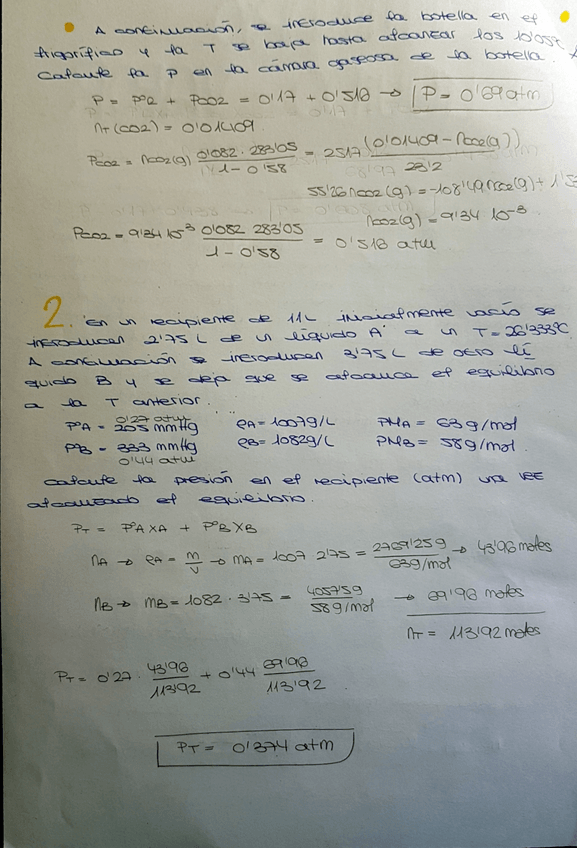 A continuación, se introduce la botella en el
frigorífico y la T se baja hasta alcanzar los 10'05ºC.
Calcule la P en la cámara gaseosa de la botella.
P = PºR + PCO2 = 0'17 + 0'518 → P = 0'69 atm
nT(CO2) = 0'01409
PCO2 = nCO2(g) 0'082 · 283'05 / 1 - 0'58 = 2517 (0'01409 - nCO2(g)) / 23'2
55'26 nCO2(g) = -108'49 nCO2(g) + 1'5
nCO2(g) = 9'34 10⁻³
PCO2 = 9'34 10⁻³ 0'082 283'05 / 1 - 0'58 = 0'518 atm
2. En un recipiente de 11L inicialmente vacío se
introducen 2'75 L de un líquido A a un T = 26'333ºC
A continuación se introducen 3'75 L de otro lí
quido B y se deja que se alcance el equilibrio
a la T anterior.
0'27 atm
PºA = 205 mmHg ρA = 1007g/L PMA = 63 g/mol
PºB = 333 mmHg ρB = 1082g/L PMB = 58g/mol
0'44 atm
Calcule la presión en el recipiente (atm) una vez
alcanzado el equilibrio.
PT = PºA XA + PºB XB
nA → ρA = m/V → mA = 1007 2'75 = 2769'25g / 63g/mol → 43'96 moles
nB → mB = 1082 · 3'75 = 4057'5g / 58g/mol → 69'96 moles
nT = 113'92 moles
PT = 0'27 · 43'96 / 113'92 + 0'44 69'96 / 113'92
PT = 0'374 atm